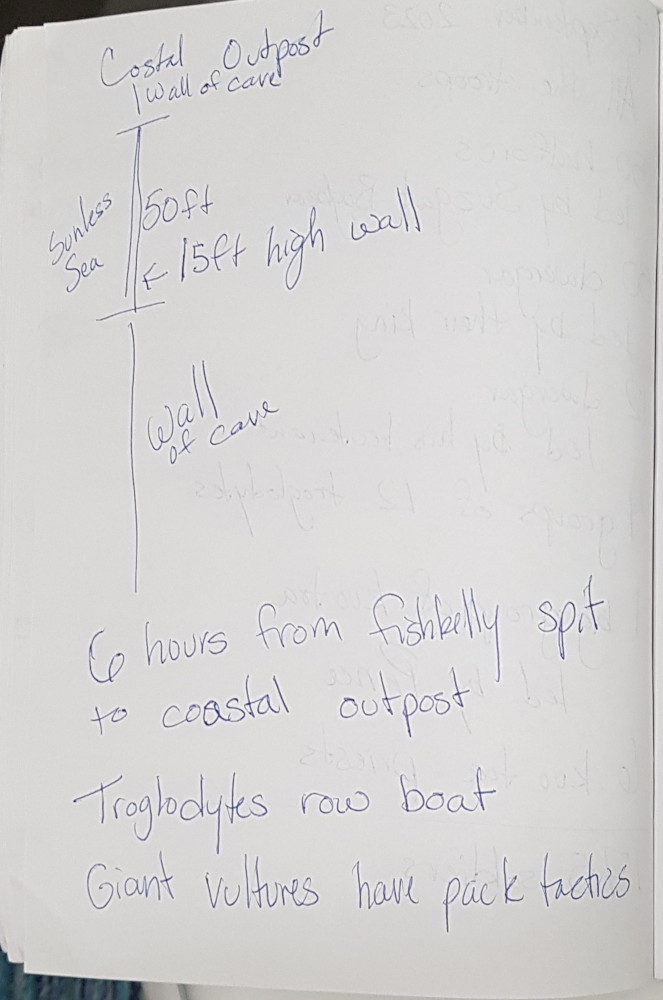 Costal Outpost
Wall of cave
Sunless
Sea
50ft
← 15ft high wall
Wall
of cave
6 hours from fishbelly spit
to coastal outpost
Troglodytes row boat
Giant vultures have pack tactics